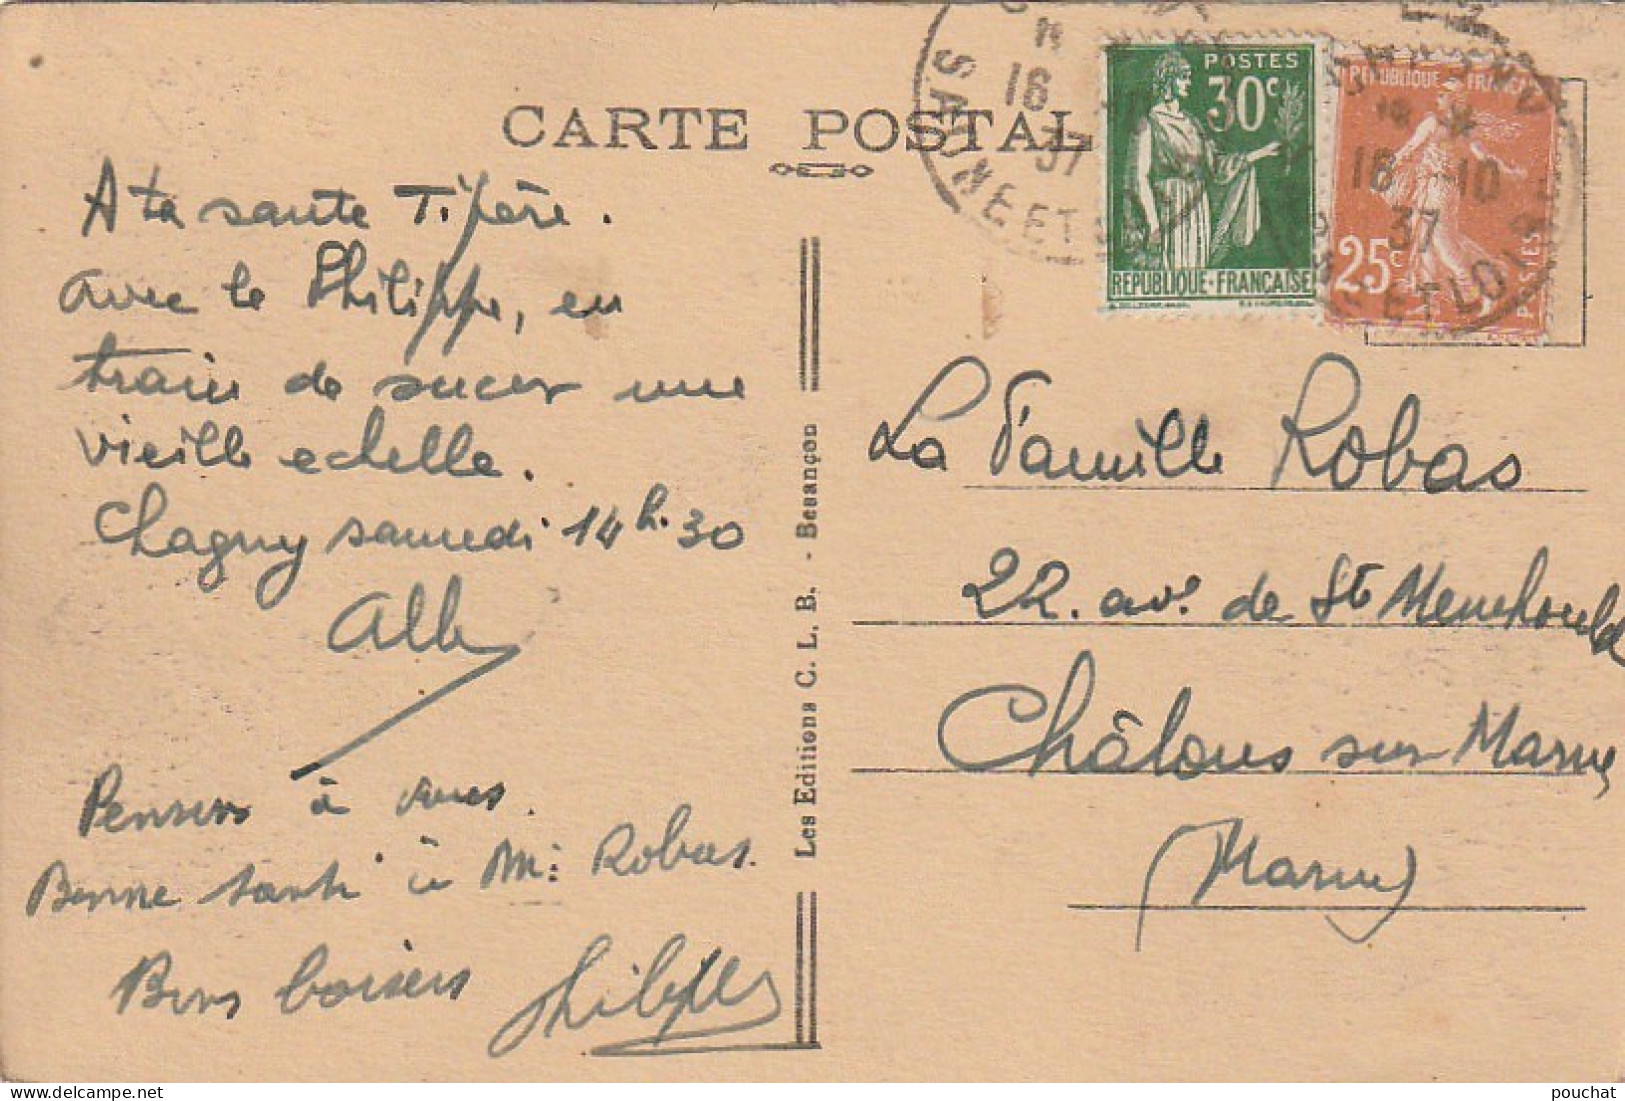 CARTE POSTALE
A ta sante Tipère.
avec le Philippe, en
train de sucer une
vieille echelle.
Chagny samedi 14 h. 30
Penser à vous.
Bonne santé à M: Robas.
Bons baisers
Philippe
Les Editions C. L. B. - Besançon
SAONE ET
16
37
POSTES
30c
REPUBLIQUE-FRANÇAISE
REPUBLIQUE FRANÇAISE
16 -10
37
ET LOIRE
25c
POSTES
La Famille Robas
22. av. de St Menehould
Châlons sur Marne
(Marne)
pouchat